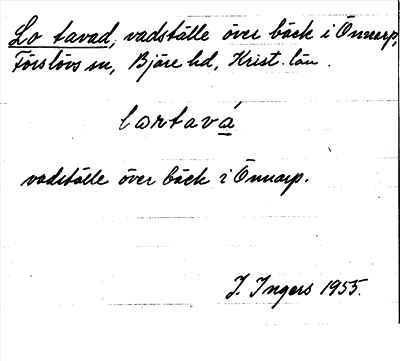 Lo tavad, vadställe över bäck i Önnarp,
Förslövs sn, Bjäre hd, Krist. län.
lortavá
vadställe över bäck i Önnarp.
I. Ingers 1955.